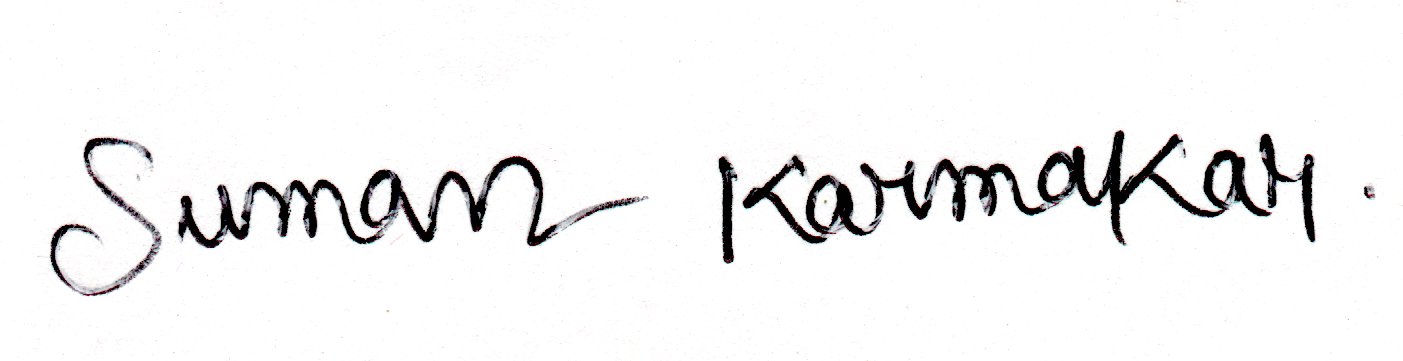 Suman Karmakar.